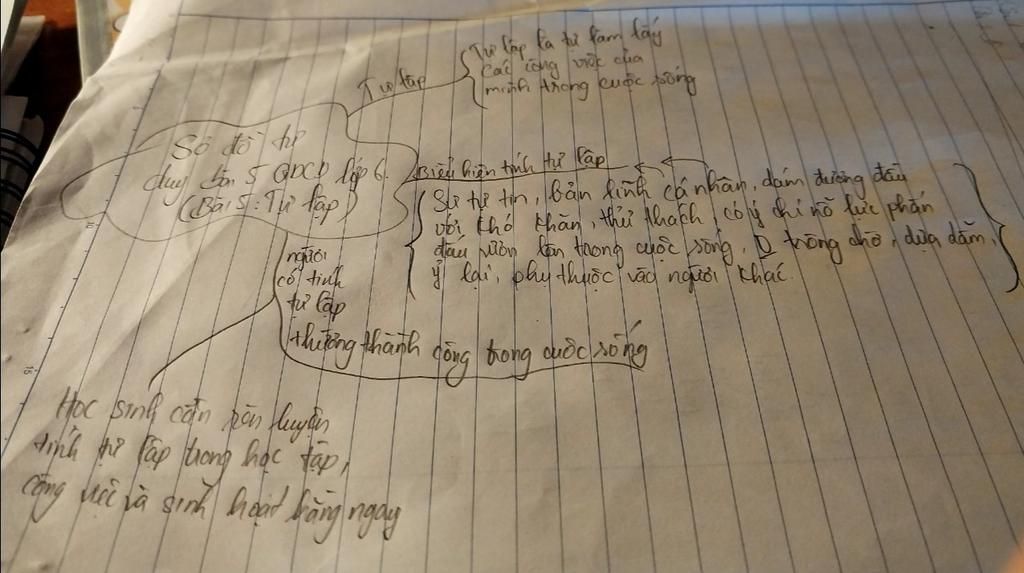 Tự lập
Tự lập là tự làm lấy
các công việc của
mình trong cuộc sống
Sơ đồ tư
duy bài 5 GDCD lớp 6
(Bài 5: Tự lập)
Biểu hiện tính tự lập
Sự tự tin, bản lĩnh cá nhân, dám đương đầu
với khó khăn, thử thách có ý chí nỗ lực phấn
đấu vươn lên trong cuộc sống, trông chờ, dựa dẫm,
ỷ lại, phụ thuộc vào người khác.
người
có tính
tự lập
thường thành công trong cuộc sống
Học sinh cần rèn luyện
tính tự lập trong học tập,
công việc và sinh hoạt hằng ngày